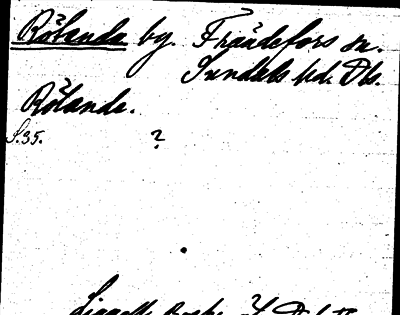 Rölanda by. Frändefors sn.
Sundals hd. Dls.
Rölanda.
S.35. ?